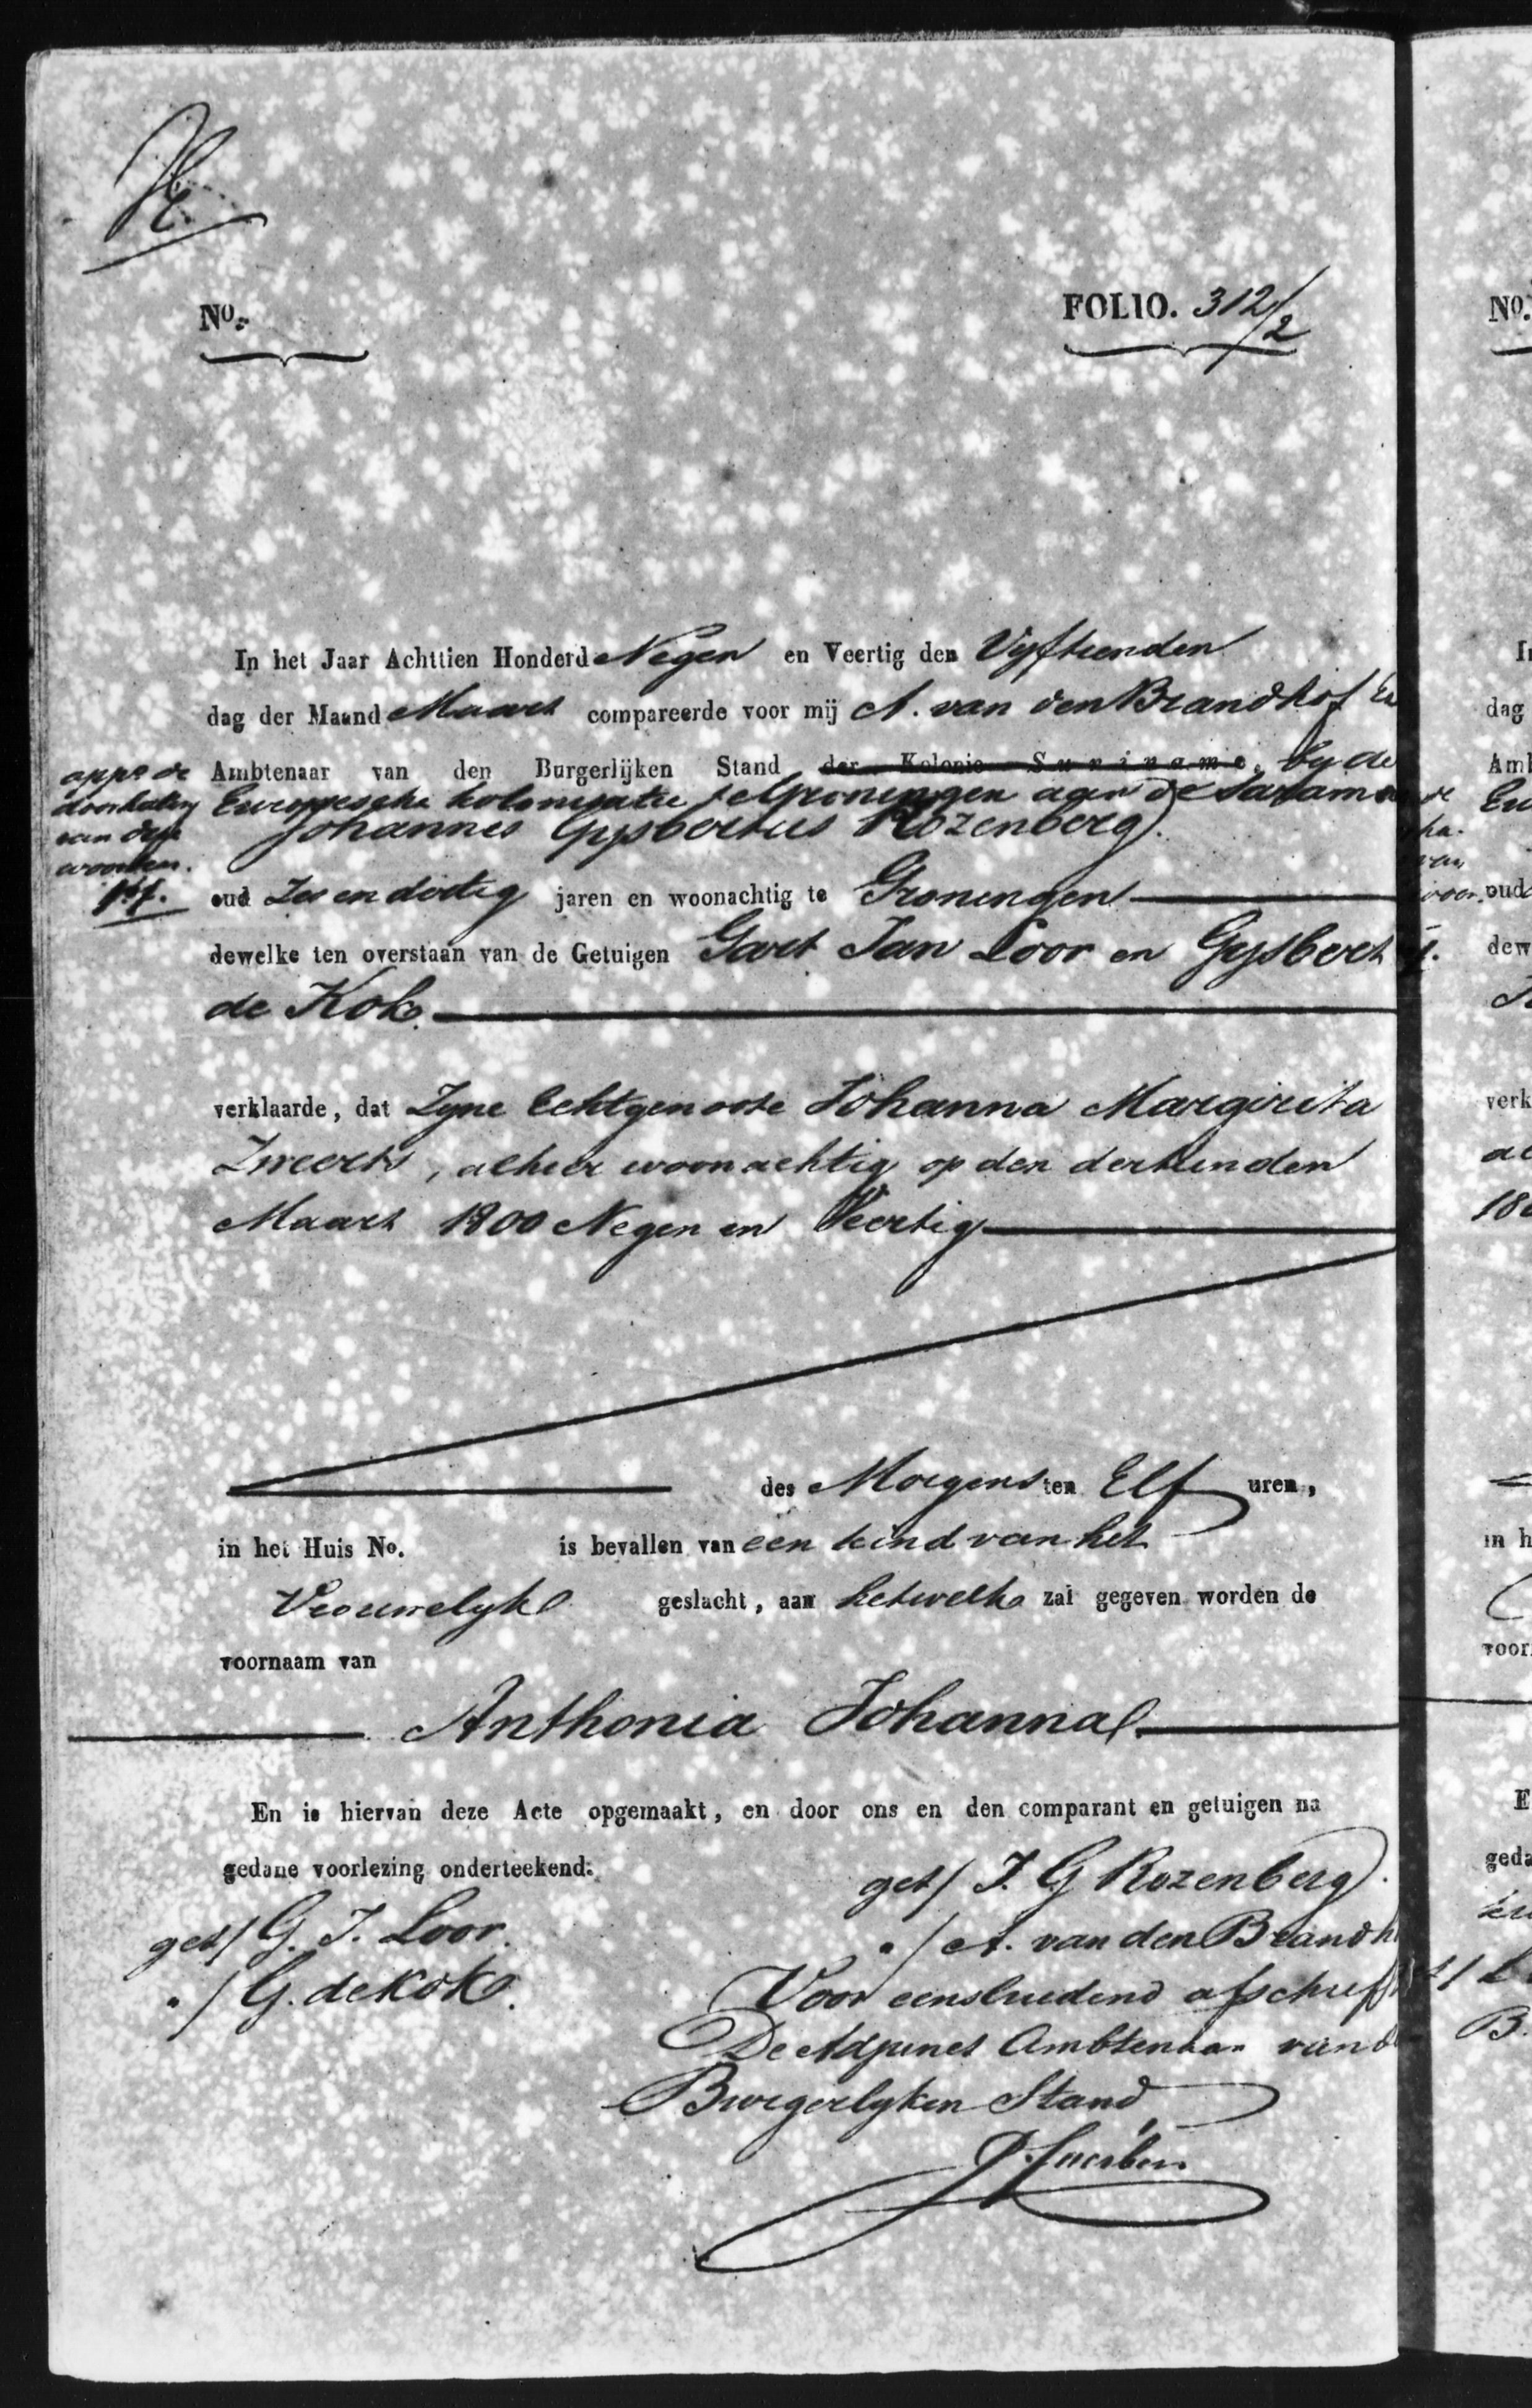 No.
FOLIO. 312/2
In het Jaar Achttien Honderd Negen en Veertig den Vyftienden
dag der Maand Maart compareerde voor mij A. van den Brandhof
Ambtenaar van den Burgerlijken Stand der Kolonie Suriname, by de
Europesche kolonisatie te Groningen aan de Sarama
Johannes Gysbertus Rozenberg
appr de
doorhaling
van drie
woorden.
oud Zes en dertig jaren en woonachtig te Groningen
dewelke ten overstaan van de Getuigen Gart Jan Loor en Gysbert
de Kok
verklaarde, dat Zyne Echtgenoote Johanna Margirita
Zweerts, alhier woonachtig op den dertienden
Maart 1800 Negen en Veertig
des Morgens ten Elf uren,
in het Huis No. is bevallen van een kind van het
Vrouwelyke geslacht, aan hetwelk zal gegeven worden de
voornaam van
Anthonia Johanna
En is hiervan deze Acte opgemaakt, en door ons en den comparant en getuigen na
gedane voorlezing onderteekend.
get/ J. G Rozenberg
get/ G. J. Loor.
"/ A. van den Brandh
"/ G. de Kok.
Voor eensluidend afschrift
De Adjunct Ambtenaar van d
Burgerlyken Stand